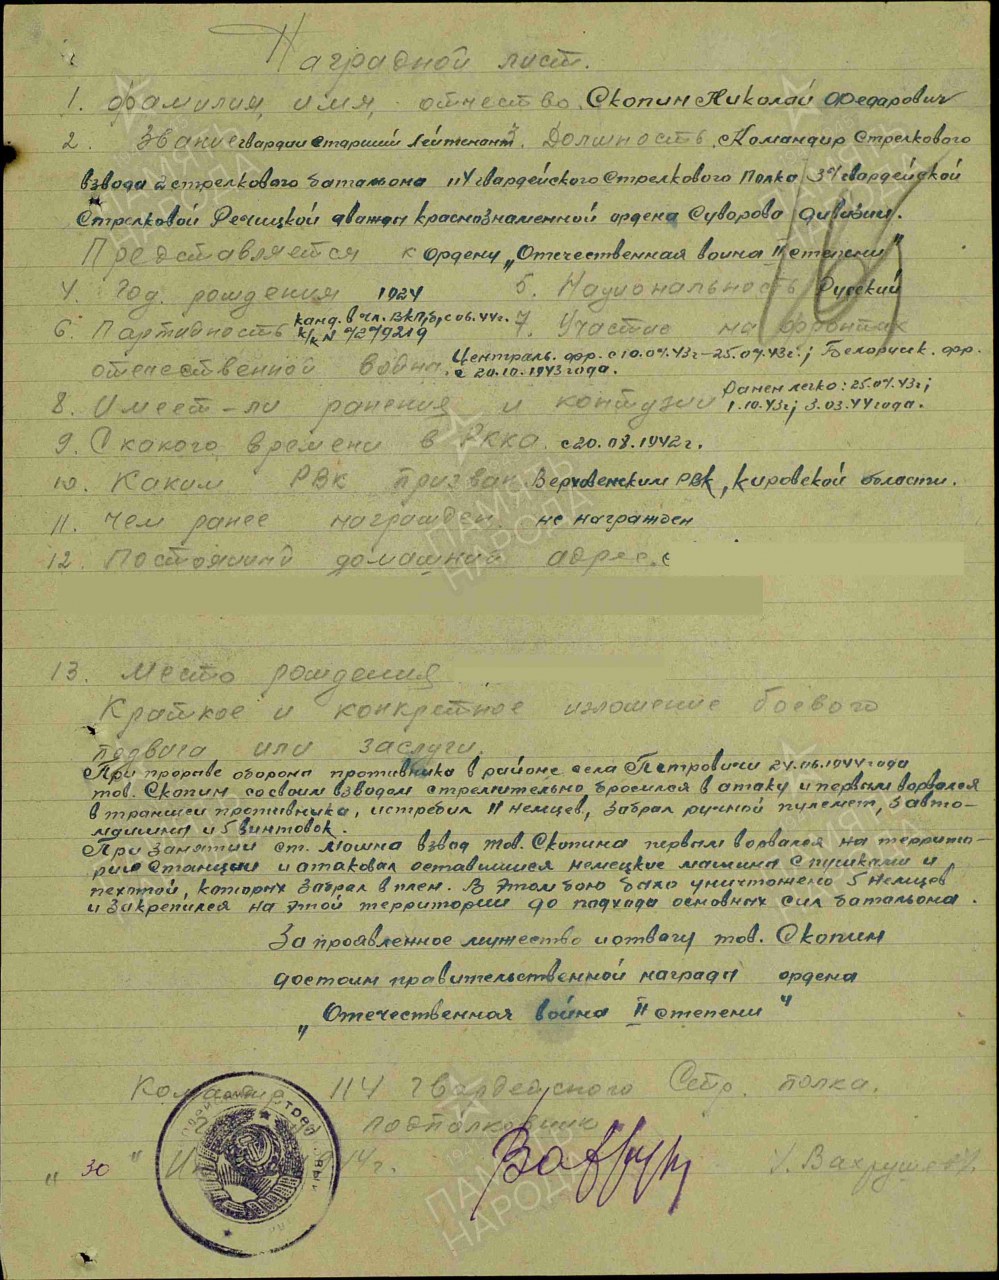 Наградной лист.
1. Фамилия, имя, отчество. Скопин Николай Федарович
2. Звание гвардии старший лейтенант 3. Должность. Командир стрелкового
взвода 2 стрелкового батальона 114 гвардейского стрелкового полка 37 гвардейской
стрелковой Речицкой дважды краснознаменной ордена Суворова дивизии.
Представляется к ордену „Отечественная война II степени"
4. Год рождения 1924 5. Национальность Русский
6. Партийность канд. в чл. ВКП(б) с 06.44г. 7. Участие на фронтах
к/к N 7279219
отечественной война. Централь. фр. с 10.07.43г – 25.07.43г.; Белорусск. фр.
с 20.10.1943 года.
8. Имеет-ли ранения и контузии Ранен легко: 25.07.43г;
1.10.43г; 3.03.44 года.
9. С какого времени в РККА. с 20.08.1942г.
10. Каким РВК призван Верховенским РВК, Кировской области.
11. Чем ранее награжден. не награжден
12. Постоянный домашний адрес.
13. Место рождения
Краткое и конкретное изложение боевого
подвига или заслуги.
При прорыве обороны противника в районе села Петровичи 24.06.1944 года
тов. Скопин со своим взводом стремительно бросился в атаку и первым ворвался
в траншеи противника, истребил 11 немцев, забрал ручной пулемет, 3 авто-
машины и 5 винтовок.
При занятии ст. Мошна взвод тов. Скопина первым ворвался на террито-
рию станции и атаковал оставшиеся немецкие машины с пушками и
пехотой, которых забрал в плен. В этом бою было уничтожено 5 немцев
и закрепился на этой территории до подхода основных сил батальона.
За проявленное мужество и отвагу тов. Скопин
достоин правительственной награды ордена
„Отечественная война II степени"
Командир 114 гвардейского Стр. полка.
подполковник
„30" 44г. Вахрушев
ПАМЯТЬ НАРОДА